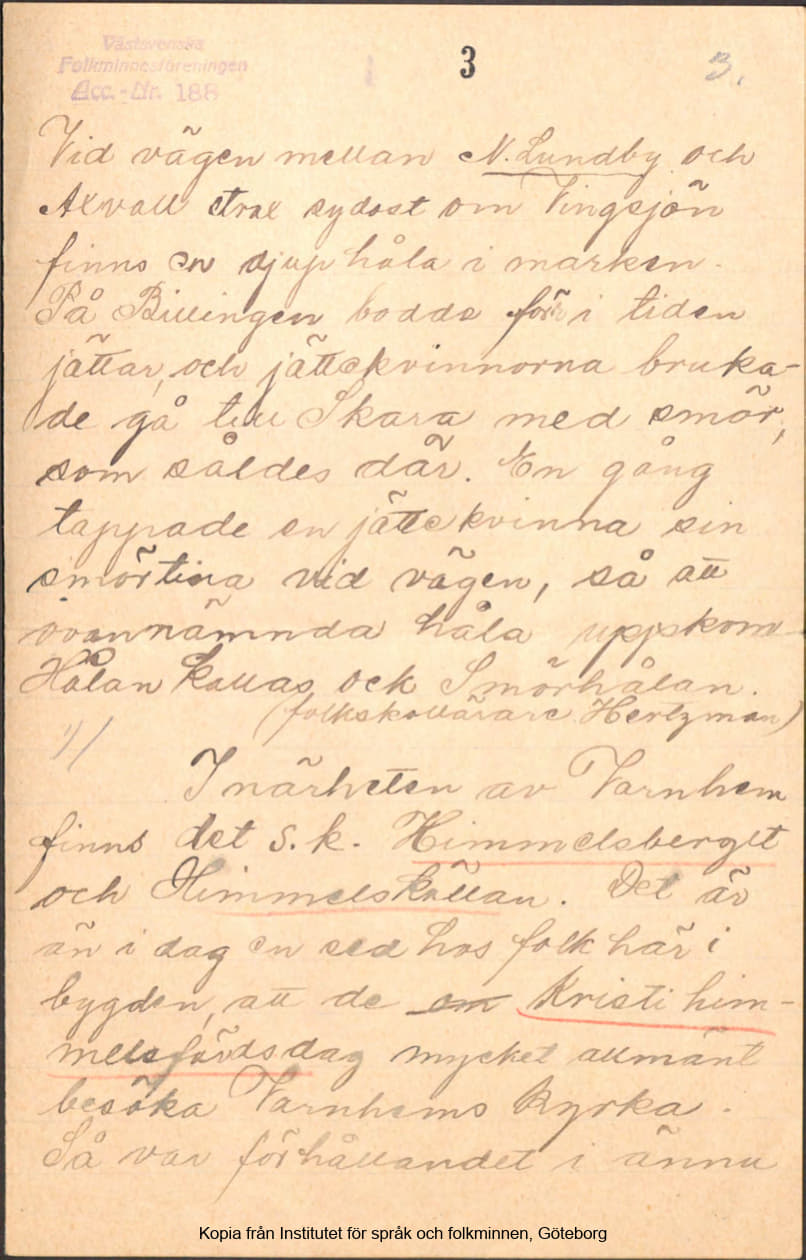 Västsvenska
Folkminnesföreningen
Acc.-Nr. 188
3
3.
Vid vägen mellan N. Lundby och
Axvall strax sydost om Vingsjön
finns en djup håla i marken.
På Billingen bodde förr i tiden
jättar, och jättekvinnorna bruka-
de gå till Skara med smör,
som såldes där. En gång
tappade en jättekvinna sin
smörtina vid vägen, så att
ovannämnda håla uppkom.
Hålan kallas ock Smörhålan.
(folkskollärare Hertzman)
I närheten av Varnhem
finns det s.k. Himmelsberget
och Himmelskällan. Det är
än i dag en sed hos folk här i
bygden, att de om Kristi him-
melsfärdsdag mycket allmänt
besöka Varnhems kyrka.
Så var förhållandet i ännu
Kopia från Institutet för språk och folkminnen, Göteborg